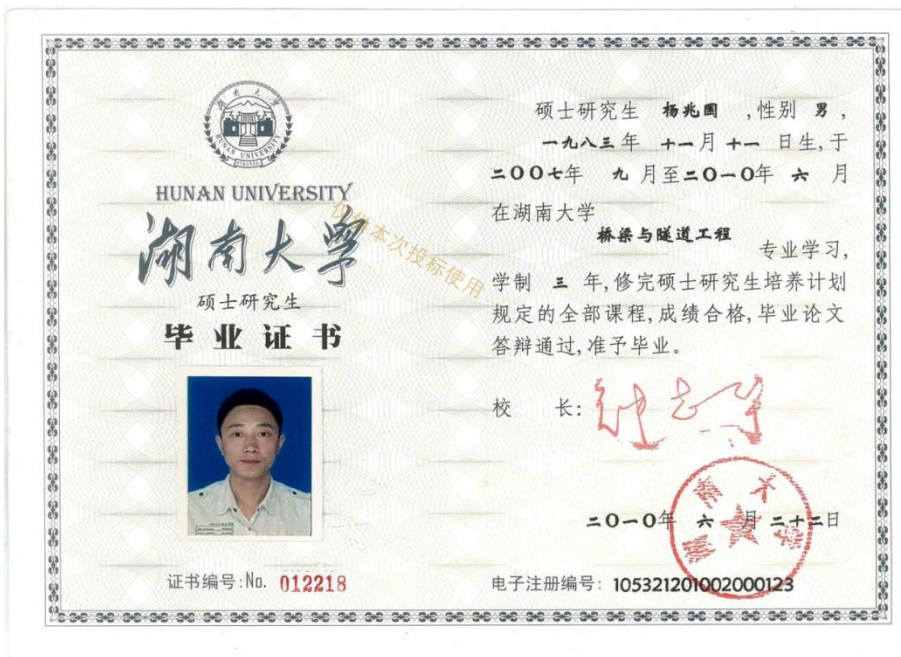 湖南大学
HUNAN UNIVERSITY
HUNAN UNIVERSITY
湖南大學
硕士研究生
毕业证书
证书编号:No. 012218
仅供本次投标使用
硕士研究生 杨兆国 ,性别 男,
一九八三年 十一月 十一 日生,于
二〇〇七年 九 月至二〇一〇年 六 月
在湖南大学
桥梁与隧道工程
专业学习,
学制 三 年,修完硕士研究生培养计划
规定的全部课程,成绩合格,毕业论文
答辩通过,准予毕业。
校 长:
二〇一〇年 六 月 二十二日
湖南大学
电子注册编号: 105321201002000123